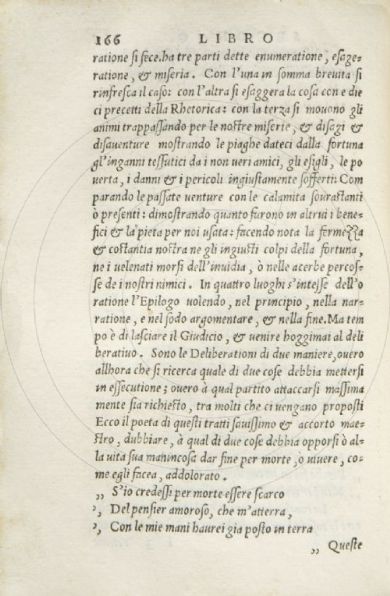 166 LIBRO
ratione si fece. ha tre parti dette enumeratione, esage-
ratione, & miseria. Con l'una in somma breuità si
rinfresca il caso: con l'altra si esaggera la cosa con e die
ci precetti della Rhetorica: con la terza si mouono gli
animi trappassando per le nostre miserie, & disagi &
disauenture mostrando le piaghe dateci dalla fortuna
gl'inganni tessutici da i non ueri amici, gli esigli, le po
uertà, i danni & i pericoli ingiustamente sofferti: Com
parando le passate uenture con le calamità sourastanti
ò presenti: dimostrando quanto furono in altrui i bene-
fici & la pietà per noi usata: facendo nota la fermezza
& costantia nostra ne gli ingiusti colpi della fortuna,
ne i uelenati morsi dell'inuidia, ò nelle acerbe percos-
se de i nostri nimici. In quattro luoghi s'intesse dell'o
ratione l'Epilogo uolendo, nel principio, nella nar-
ratione, e nel sodo argomentare, & nella fine. Ma tem
po è di lasciare il Giudicio, & uenire hoggimai al deli
beratiuo. Sono le Deliberationi di due maniere, ouero
allhora che si ricerca quale di due cose debbia mettersi
in essecutione; ouero à qual partito attaccarsi massima
mente sia richiesto, tra molti che ci uengano proposti
Ecco il poeta di questi tratti sauissimo & accorto mae-
stro, dubbiare, à qual di due cose debbia opporsi ò al-
la uita sua manincosa dar fine per morte, ò uiuere, co-
me egli facea, addolorato.
,, S'io credessi per morte essere scarco
,, Del pensier amoroso, che m'atterra,
,, Con le mie mani haurei già posto in terra
,, Queste